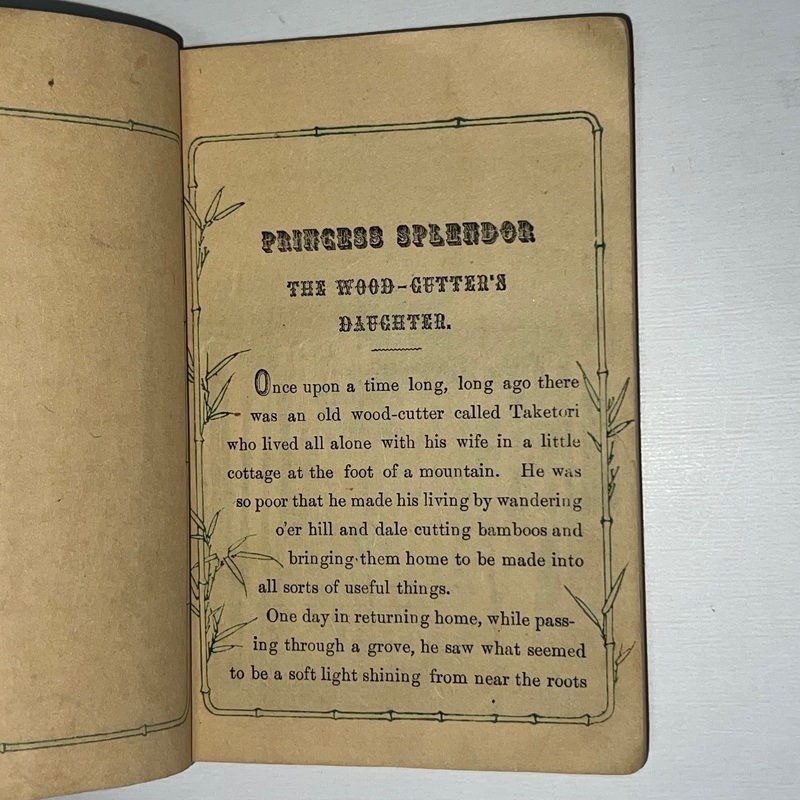 PRINCESS SPLENDOR
THE WOOD-CUTTER'S
DAUGHTER.
Once upon a time long, long ago there
was an old wood-cutter called Taketori
who lived all alone with his wife in a little
cottage at the foot of a mountain. He was
so poor that he made his living by wandering
o'er hill and dale cutting bamboos and
bringing them home to be made into
all sorts of useful things.
One day in returning home, while pass-
ing through a grove, he saw what seemed
to be a soft light shining from near the roots